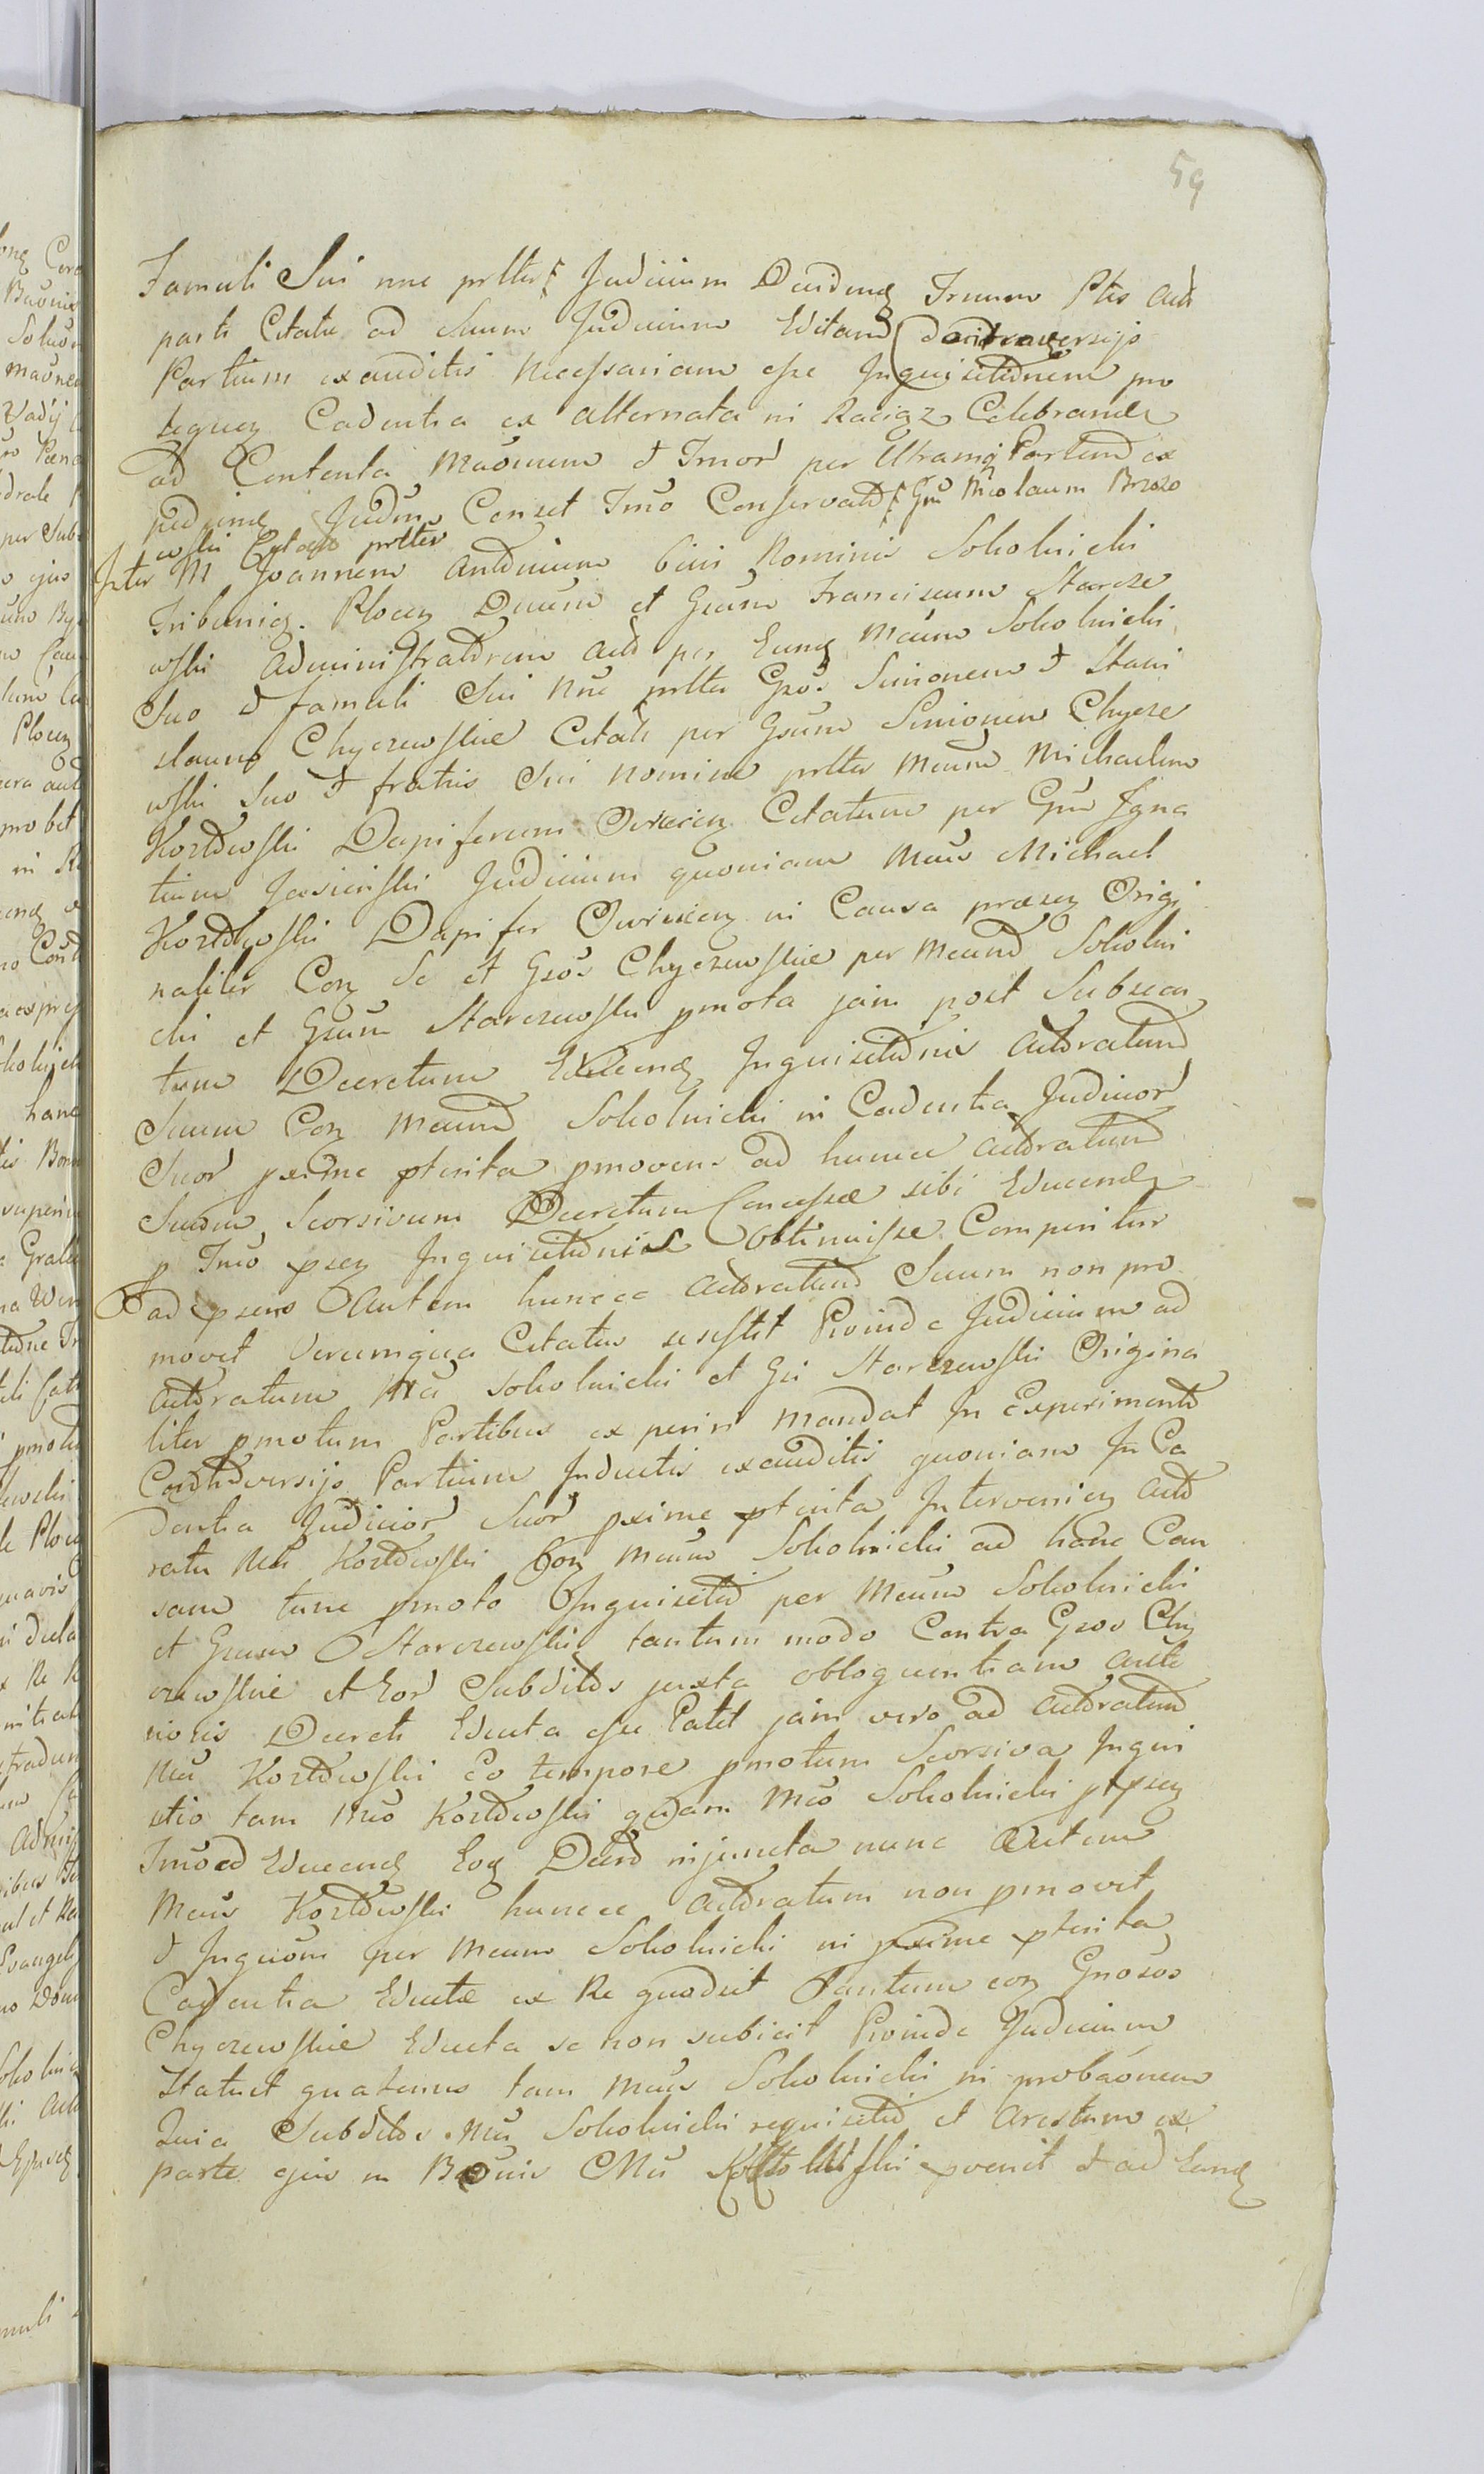 59
Famuli Sui nne prlter Judicium Trnum Ptis Actt
parti Citatu ad Suum Judicium Editand
Partium exauditis Necessariam esse Inquisitionem pro
sequen Cadentia ex alternata in Raciąz Celebranda
ad Contenta Maonum & Trnor per Utramq Partem ex
Judm Censet Tmo Conservato Gm Nicolaum Brzozo
wski prltter
Inter M Joannem Antonium bini Nominis Sokolnicki
Tribunig. Plocen Duum et Gsum Franciscum Starcze
wski Administratorem Actt per Eund Mcum Sokolnicki
Suo & famuli Sui Nne prltter Gsos Simonem & Stani
slaum Chyczewskie Citati per Gsum Simonem Chycze
wski Suo & fratris Sui nomine prltter Mcum Michaelem
Kozłowski Dapiferum Owrucien Citatum per Gsum Igna
tium Jasieński Judicium quoniam Mcus Michael
Kozłowski Dapifer Owrucien in Causa praesen Origi
naliter Con Se et Gsos Chyczewskie per Mcum Sokolni
cki et Gsum Starczewski pmota jam post Subsecu
tum Decretum Inquisitionis Actoratum
Suum Con Mcum Sokolnicki in Cadentia Judicior
Suor pxime pterita pmovens ad huncce Actoratum
Suum Seorsivum Decretum Concessae sibi Educend
p Tmo psen Inquisitionis Obtinuisse Comperitur
ad psens Autem huncce Actoratum Suum non pro
movet Verumqua Citatus se sistit Proinde Judicium ad
Actoratum Mci Sokolnicki et Gsi Starczewski Origina
liter pmotum Partibus experiri mandat In Experimento
Controversijs Partium Inductis exauditis quoniam In Ca
dentia Judicior Suor pxime pterita Intervenien Acto
ratu Mci Kozłowski Con Mcum Sokolnicki ad hanc Cau
sam tunc pmoto Inquisitio per Mcum Sokolnicki
et Gsum Starczewski tantum modo Contra Gsos Chy
czewskie et Eor Subditos juxta obloquentiam Ante
rioris Decreti Educta esse Patet jam vero ad Actoratum
Mci Kozłowski eo tempore pmotum Seorsiva Inqui
sitio tam Mco Kozłowski quam Mco Sokolnicki p psen
Tmo ad Educend Eod Decreto injuncta nunc Autem
Mcus Kozłowski huncce Actoratum non pmovet
& Inquōni per Mcum Sokolnicki in pxime pterita
Cadentia Eductae ex Re quod sit Tantum con Gnosos
Chyczewskie Educta se non subicit Proinde Judicium
Statuit quatenus tam Mcus Sokolnicki in probaōnem
Quia Subditos Mci Sokolnicki requisitio et Arestum ex
parte ejus in Bonis Mci Kozłowski pvenit & ad Eand